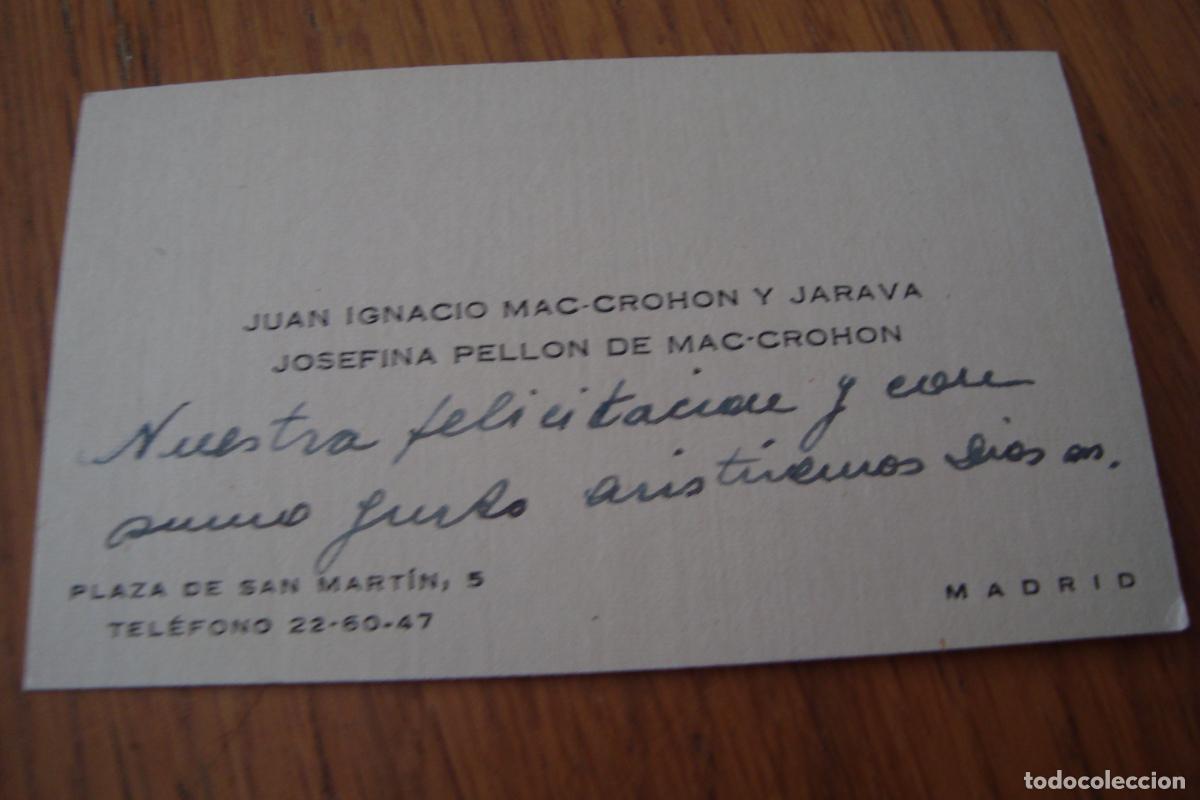 JUAN IGNACIO MAC-CROHON Y JARAVA
JOSEFINA PELLON DE MAC-CROHON
Nuestra felicitacion y con
sumo gusto asistiremos Dios m.
PLAZA DE SAN MARTÍN, 5
TELÉFONO 22-60-47
MADRID
todocoleccion